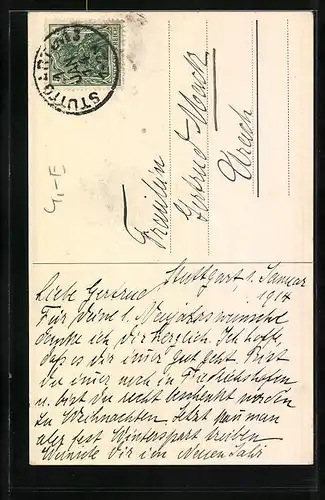 STUTTGART
4,-E
Fräulein
Gertrud Mack
Urach
Stuttgart 1. Januar
1914
Liebe Gertrud
Für deine l. Neujahrswünsche
danke ich dir herzlich. Ich hoffe,
daß es dir immer gut geht. Bist
du immer noch in Friedrichshafen
u. bist du recht beschenkt worden
zu Weihnachten. Jetzt kann man
aber fest Wintersport treiben
Wünsche dir im Neuen Jahr